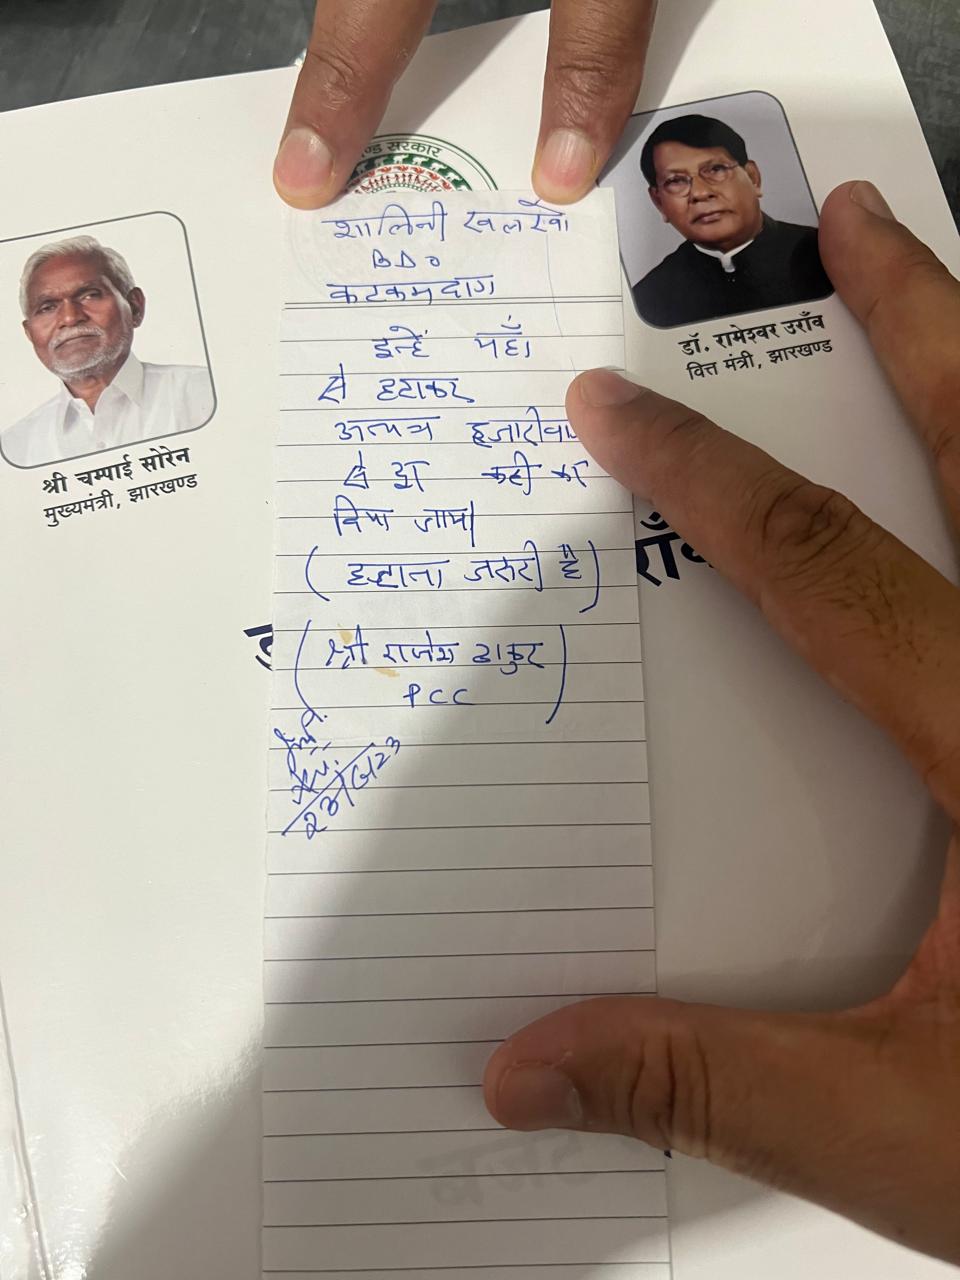 ण्ड सरकार
शालिनी खलखो
BDO
कटकमदाग
इन्हें यहाँ
से हटाकर
अन्यत्र हजारीबा
से कहीं कर
दिया जाय।
(हटाना जरूरी है)
(श्री राजेश ठाकुर
PCC)
श्री चम्पाई सोरेन
मुख्यमंत्री, झारखण्ड
डॉ. रामेश्वर उराँव
वित्त मंत्री, झारखण्ड